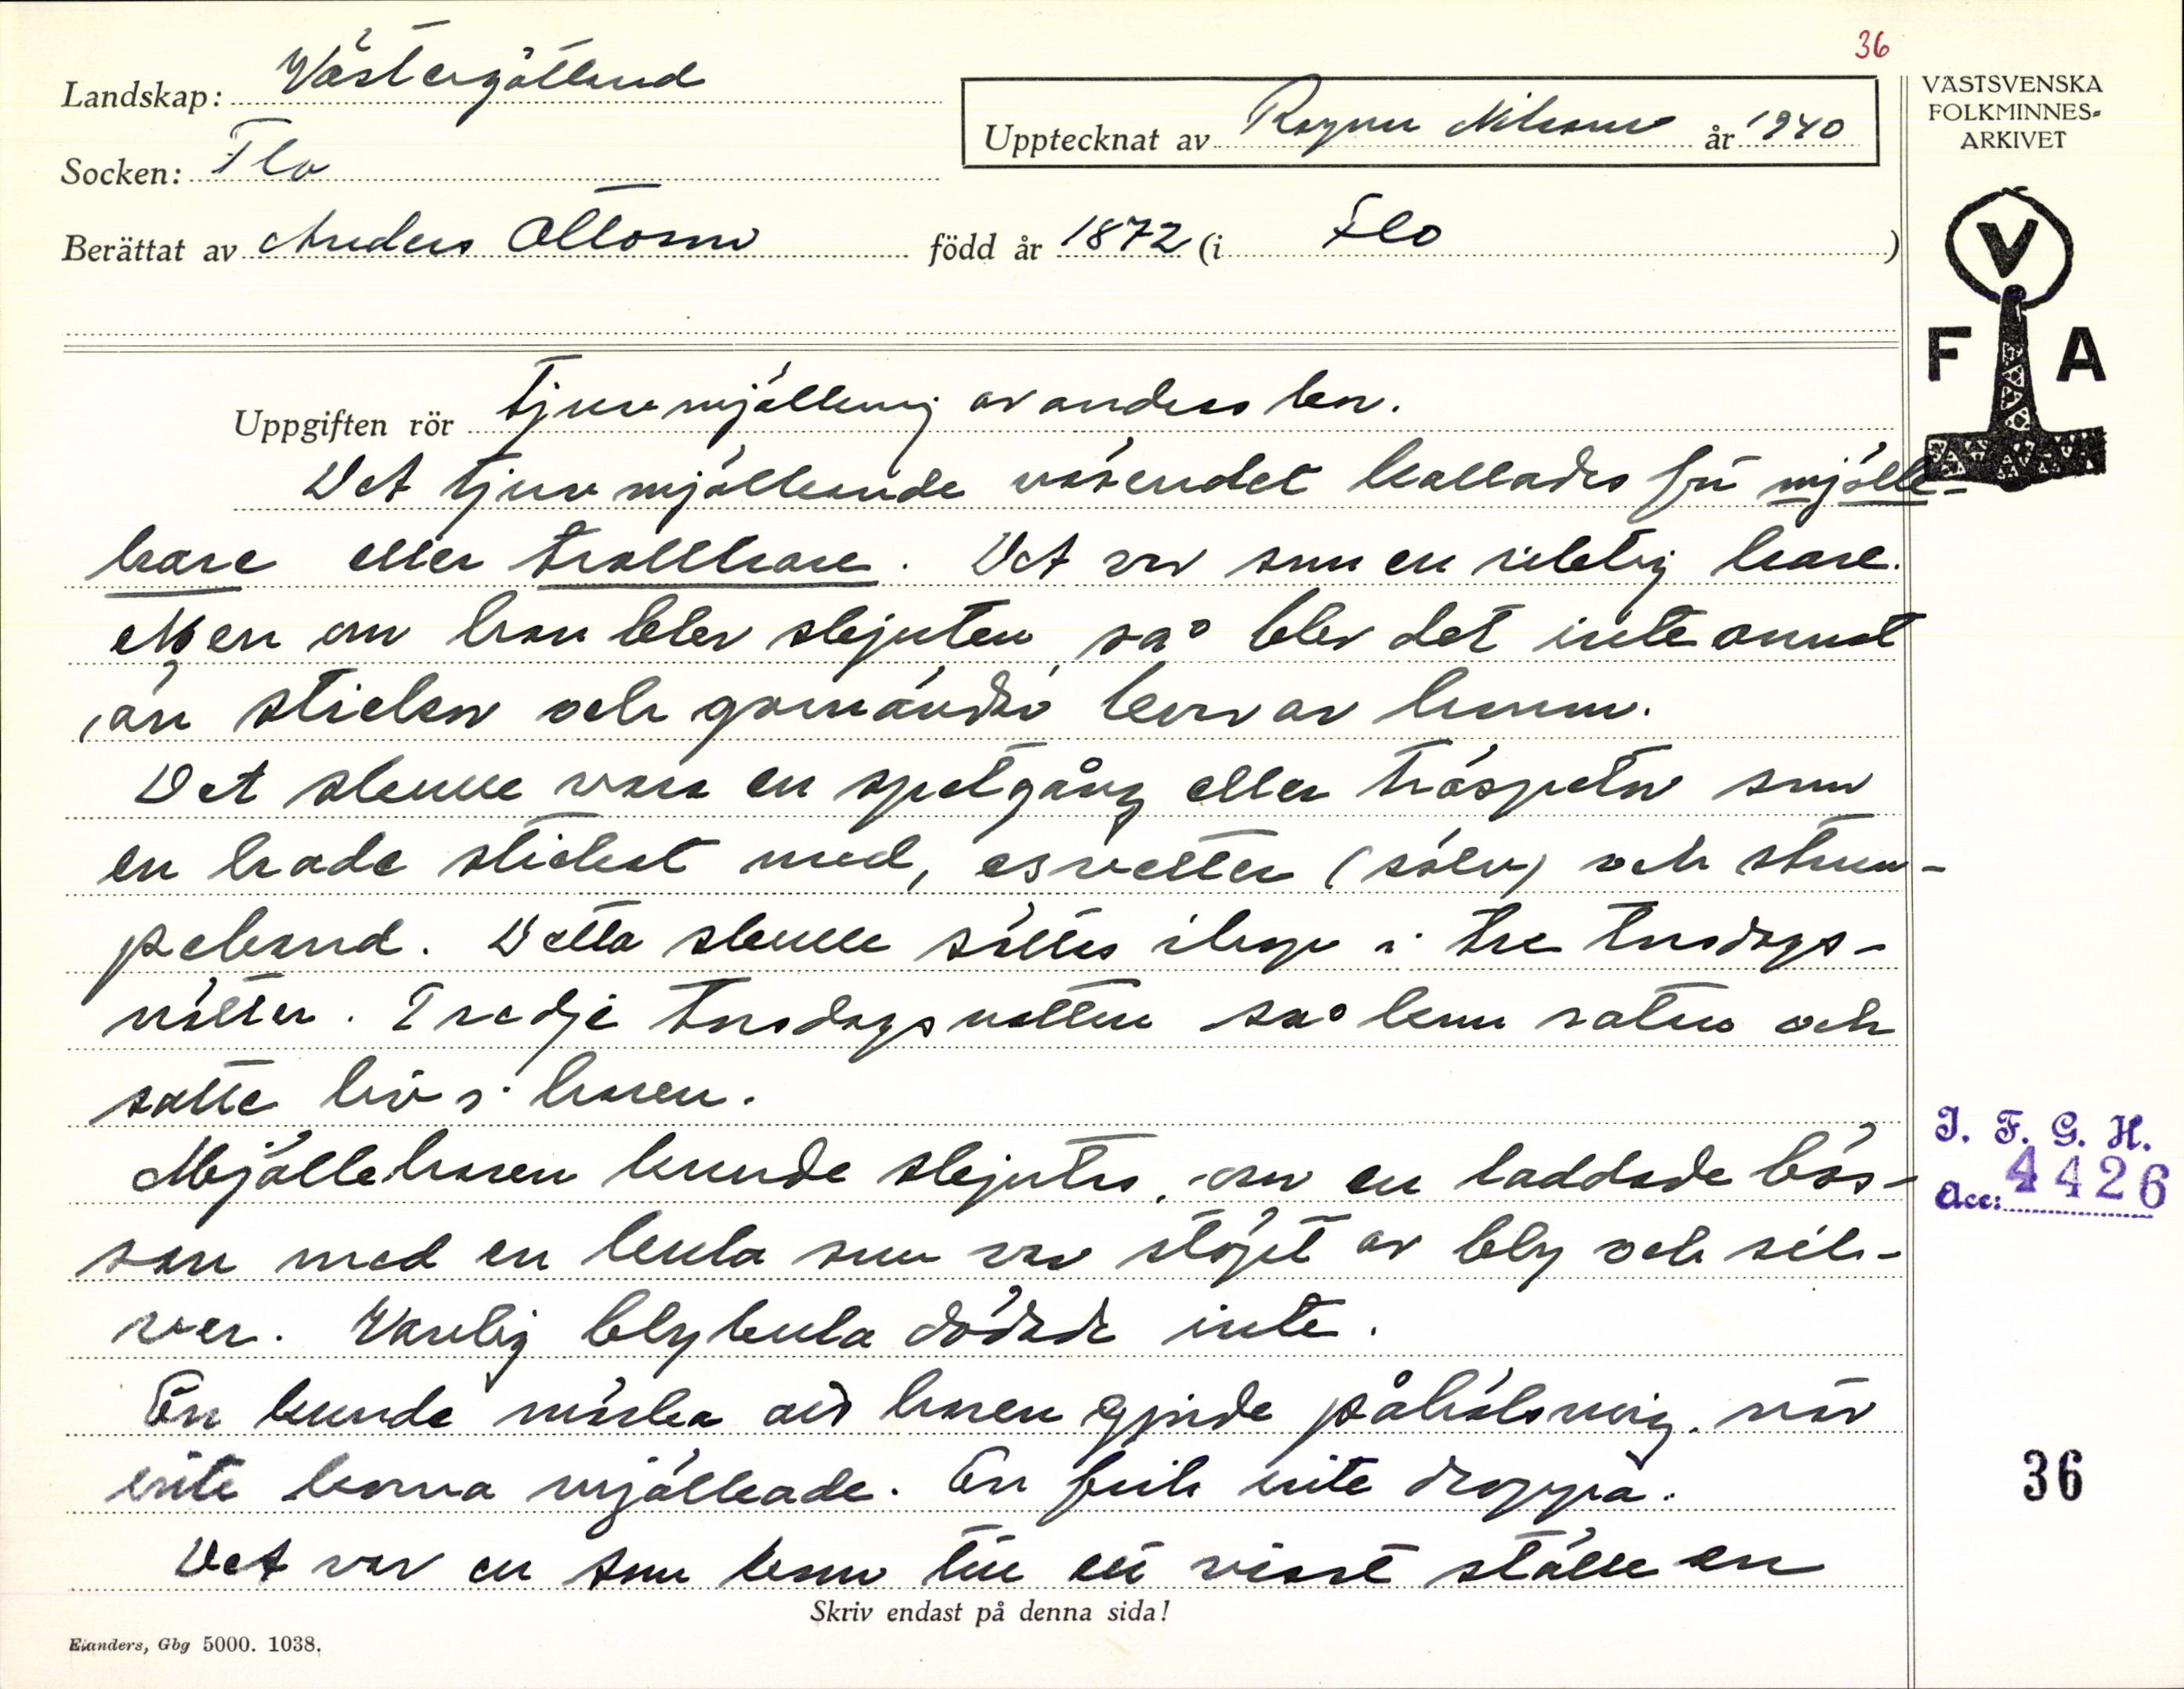 36
Landskap: Västergötland
Upptecknat av Ragnar Nilsson år 1940
VÄSTSVENSKA
FOLKMINNES-
ARKIVET
Socken: Flo
Berättat av Anders Ottoson född år 1872 (i Flo)
V
F A
Uppgiften rör Tjuvmjölkning av andras kor.
Det tjuvmjölkande väsendet kallades för mjölk-
hare eller trollhare. Det var som en riktig hare.
Men om han blev skjuten, så blev det inte annat
än stickor och kvar av honom.
Det skulle vara en spetgång eller träspetor som
en hade stickat med, esvetter (solv) och strum-
peband. Detta skulle sättas ihop i tre torsdags-
nätter. Tredje torsdagsnatten så kom satan och
satte liv i haren.
Mjölkeharen kunde skjutas, om en laddade bös-
san med en kula som var stöpt av bly och sil-
ver. Vanlig blykula dödade inte.
En kunde märka att haren gjorde påhälsning, när
inte korna mjölkade. En fick inte droppa.
Det var en som kom till ett visst ställe en
Skriv endast på denna sida!
Elanders, Gbg 5000. 1038.
I. F. G. H.
Acc: 4426
36